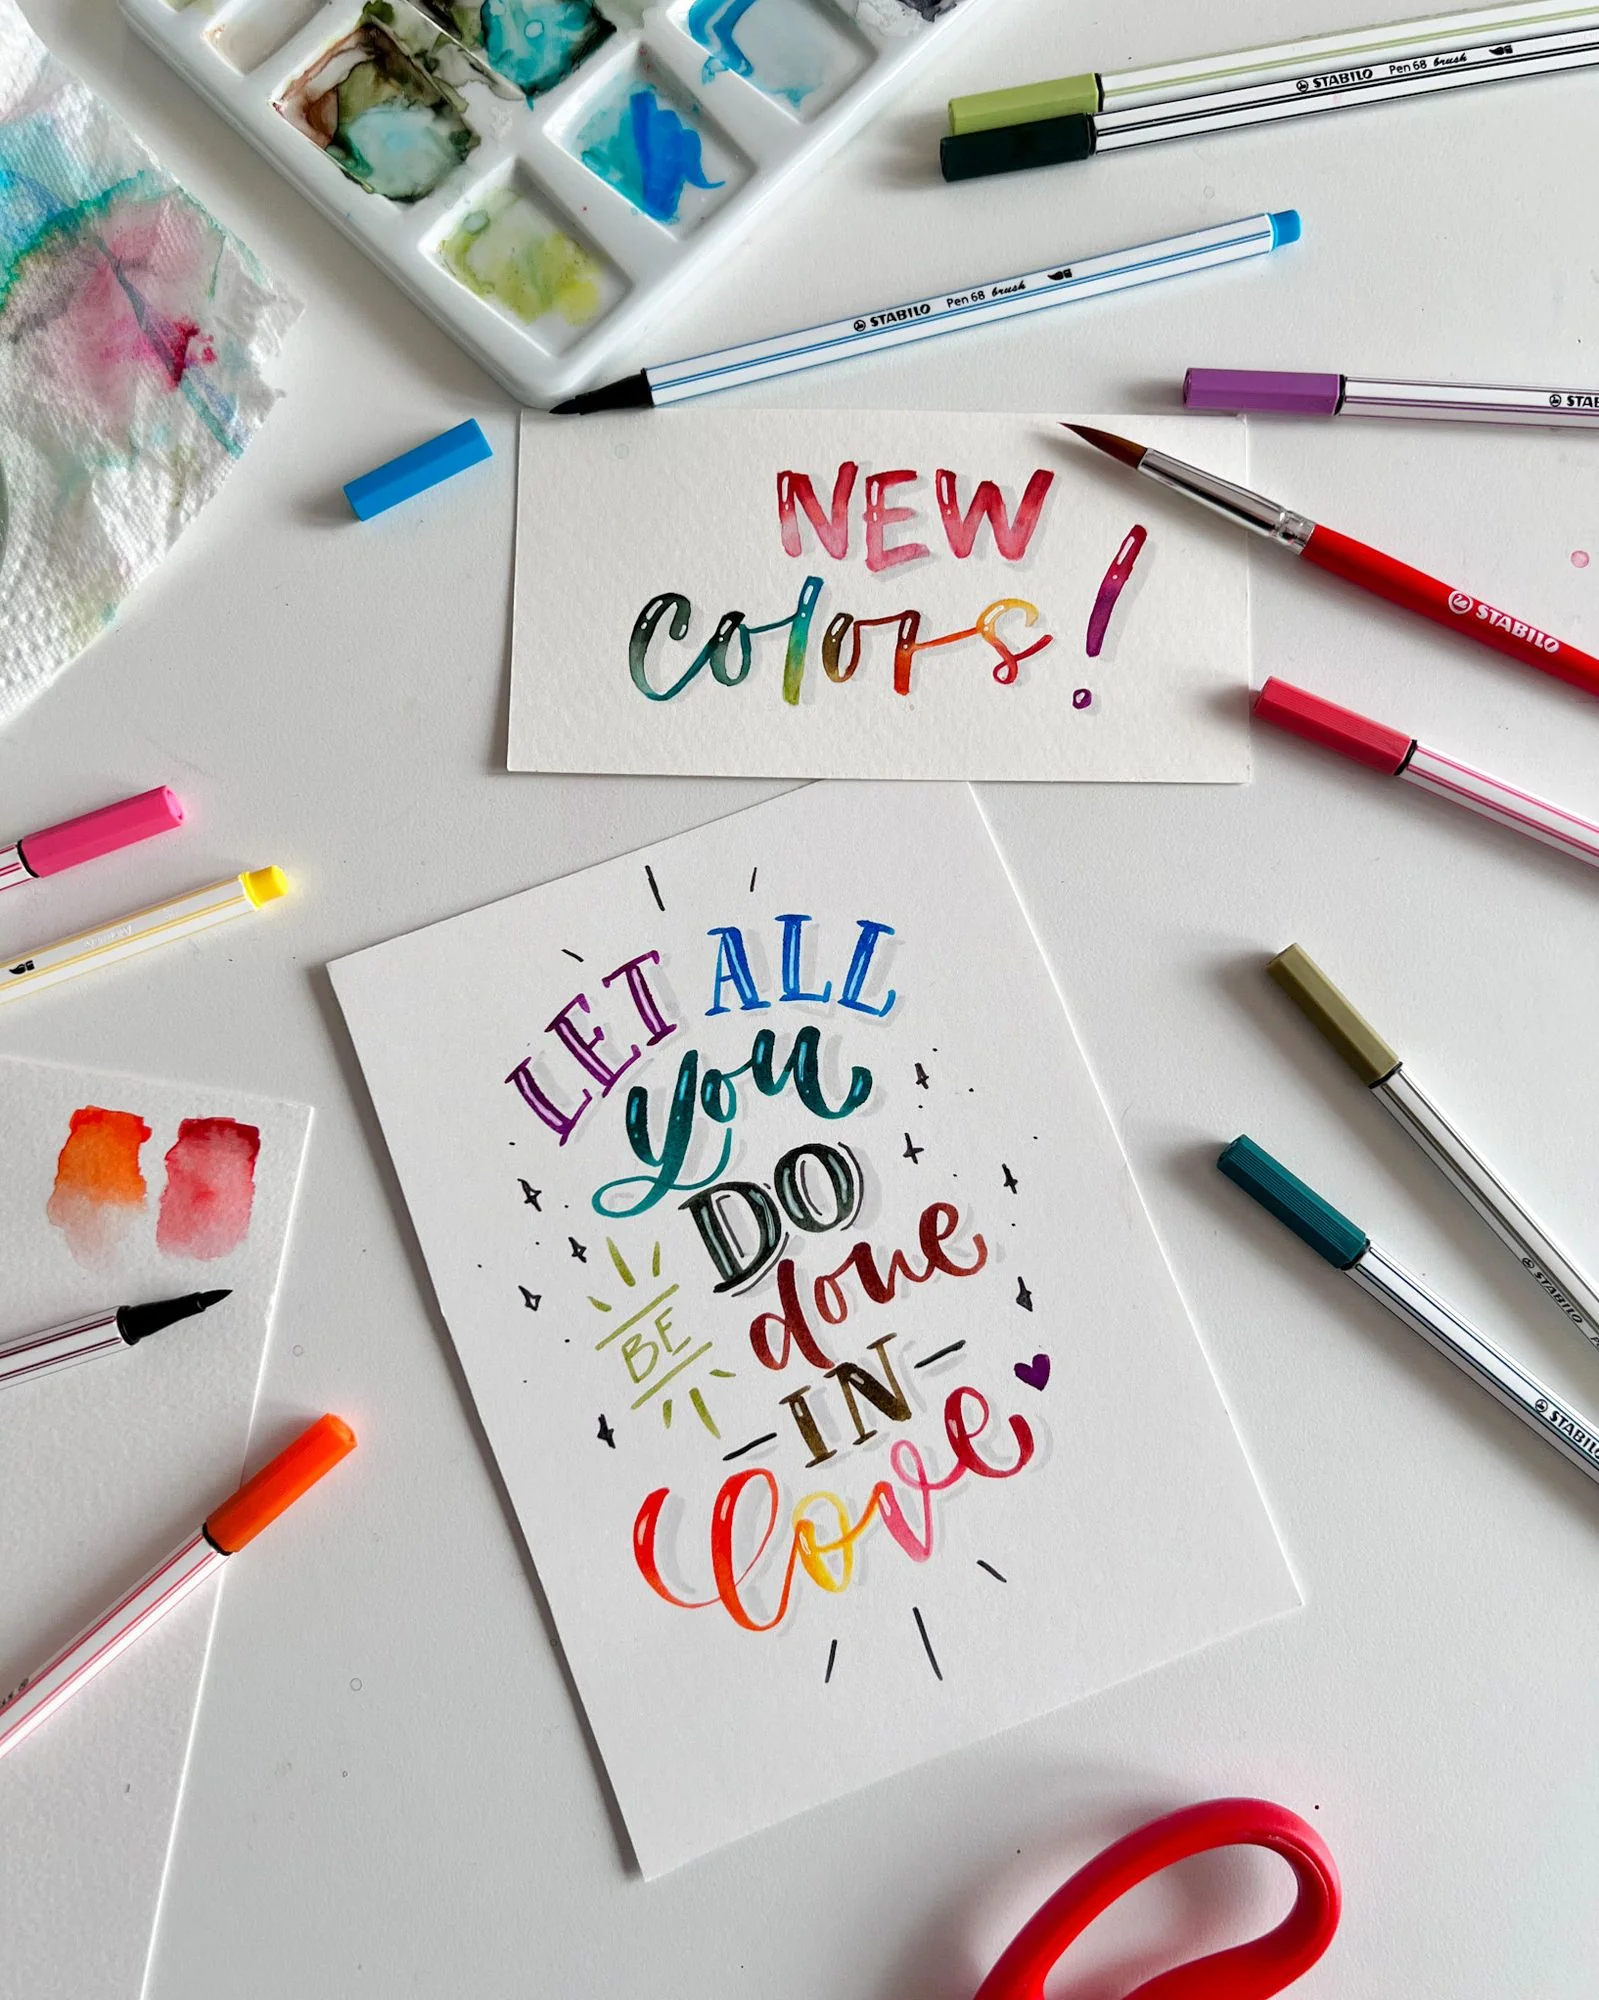 STABILO Pen 68 brush
STABILO Pen 68 brush
STAB
STABILO
NEW
colors!
LET ALL
you
DO
BE done
IN
love
STABILO
STABILO